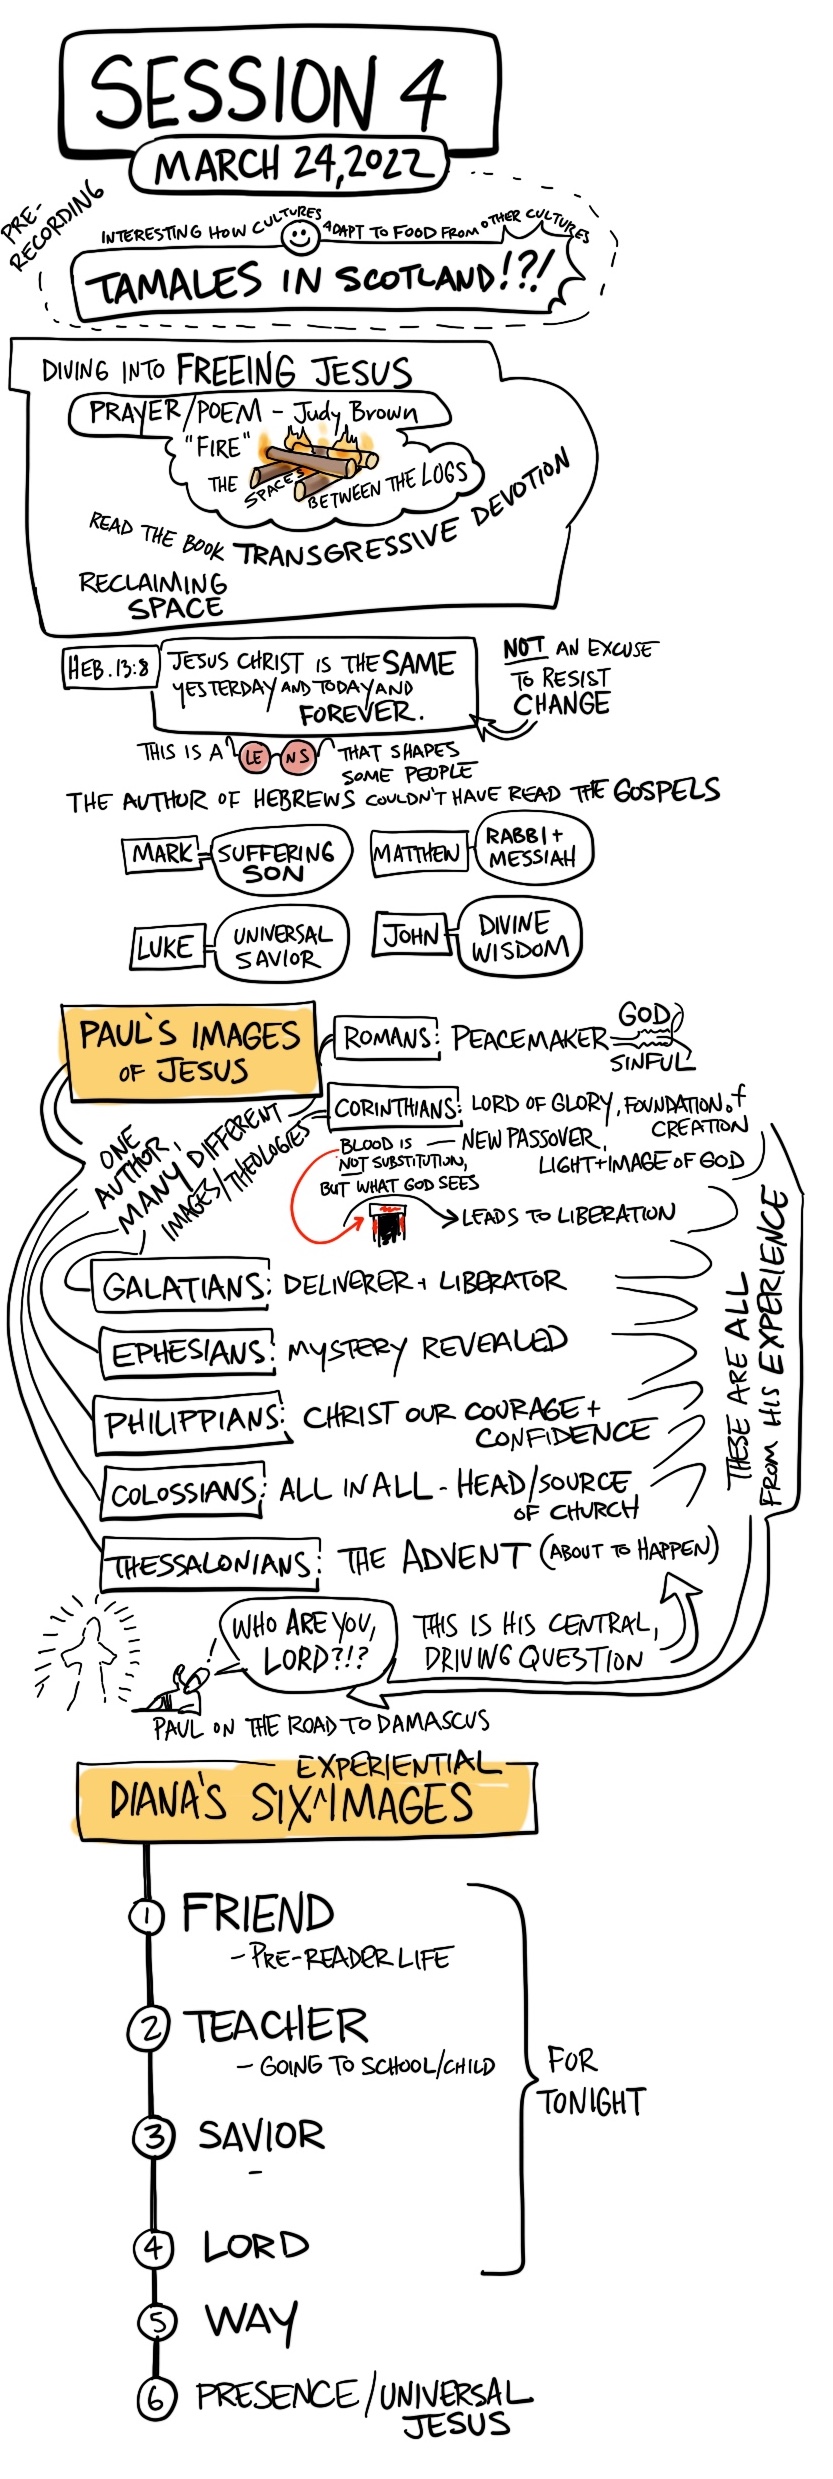 SESSION 4
MARCH 24, 2022
PRE-
RECORDING
INTERESTING HOW CULTURES ADAPT TO FOOD FROM OTHER CULTURES
TAMALES IN SCOTLAND!?!
DIVING INTO FREEING JESUS
PRAYER/POEM - Judy Brown
"FIRE"
THE SPACES BETWEEN THE LOGS
READ THE BOOK TRANSGRESSIVE DEVOTION
RECLAIMING
SPACE
HEB. 13:8
JESUS CHRIST IS THE SAME
YESTERDAY AND TODAY AND
FOREVER.
NOT AN EXCUSE
TO RESIST
CHANGE
THIS IS A LENS THAT SHAPES
SOME PEOPLE
THE AUTHOR OF HEBREWS COULDN'T HAVE READ THE GOSPELS
MARK
SUFFERING
SON
MATTHEW
RABBI +
MESSIAH
LUKE
UNIVERSAL
SAVIOR
JOHN
DIVINE
WISDOM
PAUL'S IMAGES
OF JESUS
ROMANS: PEACEMAKER
GOD
SINFUL
ONE
AUTHOR,
MANY DIFFERENT
IMAGES/THEOLOGIES
CORINTHIANS: LORD OF GLORY, FOUNDATION of
CREATION
NEW PASSOVER,
LIGHT + IMAGE OF GOD
BLOOD IS
NOT SUBSTITUTION,
BUT WHAT GOD SEES
LEADS TO LIBERATION
GALATIANS: DELIVERER + LIBERATOR
EPHESIANS: MYSTERY REVEALED
PHILIPPIANS: CHRIST OUR COURAGE +
CONFIDENCE
COLOSSIANS: ALL IN ALL - HEAD/SOURCE
OF CHURCH
THESSALONIANS: THE ADVENT (ABOUT TO HAPPEN)
THESE ARE ALL
FROM HIS EXPERIENCE
WHO ARE YOU,
LORD?!?
THIS IS HIS CENTRAL,
DRIVING QUESTION
PAUL ON THE ROAD TO DAMASCUS
EXPERIENTIAL
DIANA'S SIX^IMAGES
1 FRIEND
- PRE-READER LIFE
2 TEACHER
- GOING TO SCHOOL/CHILD
3 SAVIOR
-
4 LORD
FOR
TONIGHT
5 WAY
6 PRESENCE/UNIVERSAL
JESUS